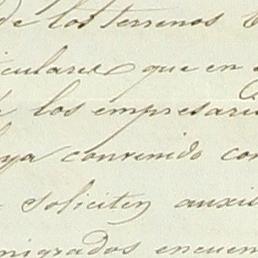 de los terrenos
iculares que en
los empresari
aya convenido con
soliciten auxi
migrados encuen